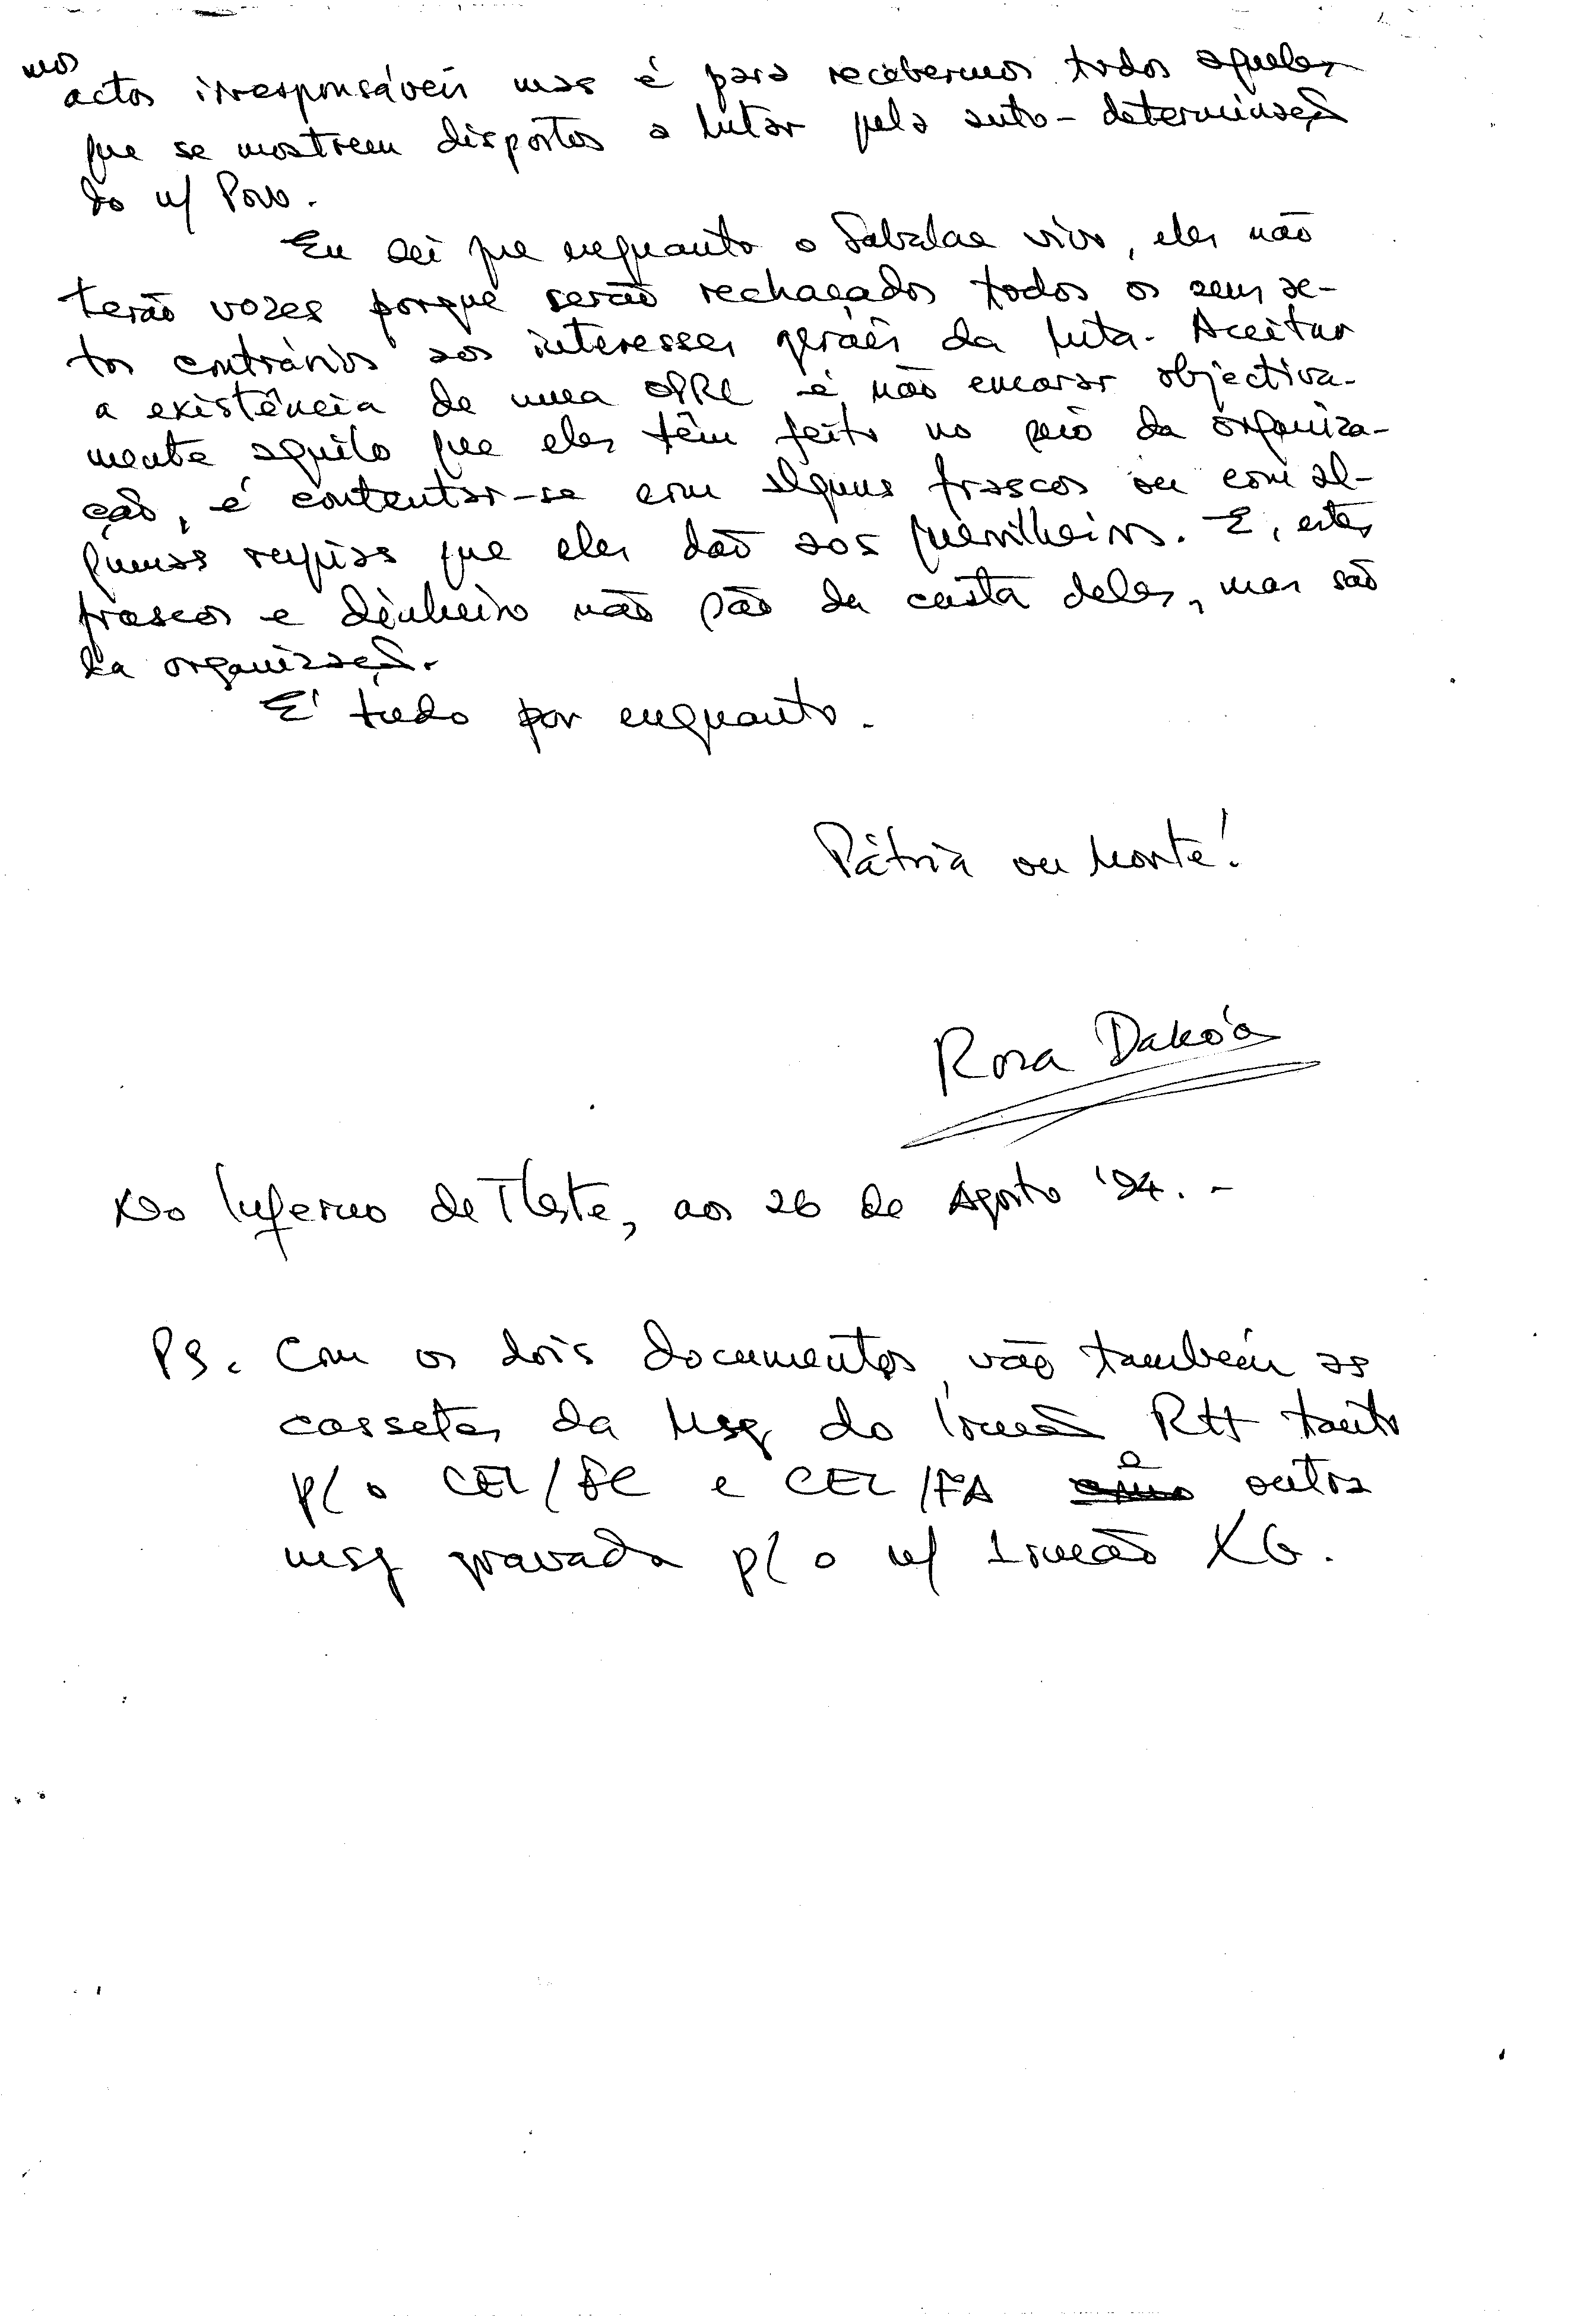 mos
actos irresponsáveis mas é para recebermos todos aqueles
que se mostrem dispostos a lutar pela auto-determinação
do n/ Povo.
Eu sei que enquanto o Sabalae vivo, eles não
terão vozes porque serão rechaçados todos os seus ac-
tos contrários aos interesses gerais da luta. Aceitar
a existência de uma OPRL é não encarar objectiva-
mente aquilo que eles têm feito no seio da organiza-
ção, é contentar-se com alguns frascos ou com al-
gumas que eles dão aos guerrilheiros. E, estes
frascos e dinheiro não são da custa deles, mas são
da organização.
É tudo por enquanto.
Pátria ou Morte!
Rosa Dakó'a
Do Inferno de TLeste, aos 26 de Agosto '94.-
PS. Com os dois documentos, vão também as
cassetes da Msg do Irmão RH tanto
p/ o CEL/ e CEL/FA outra
msg gravada p/ o n/ Irmão XG.